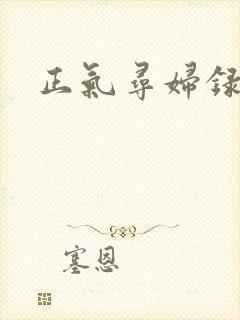 正氣尋婦録
塞恩